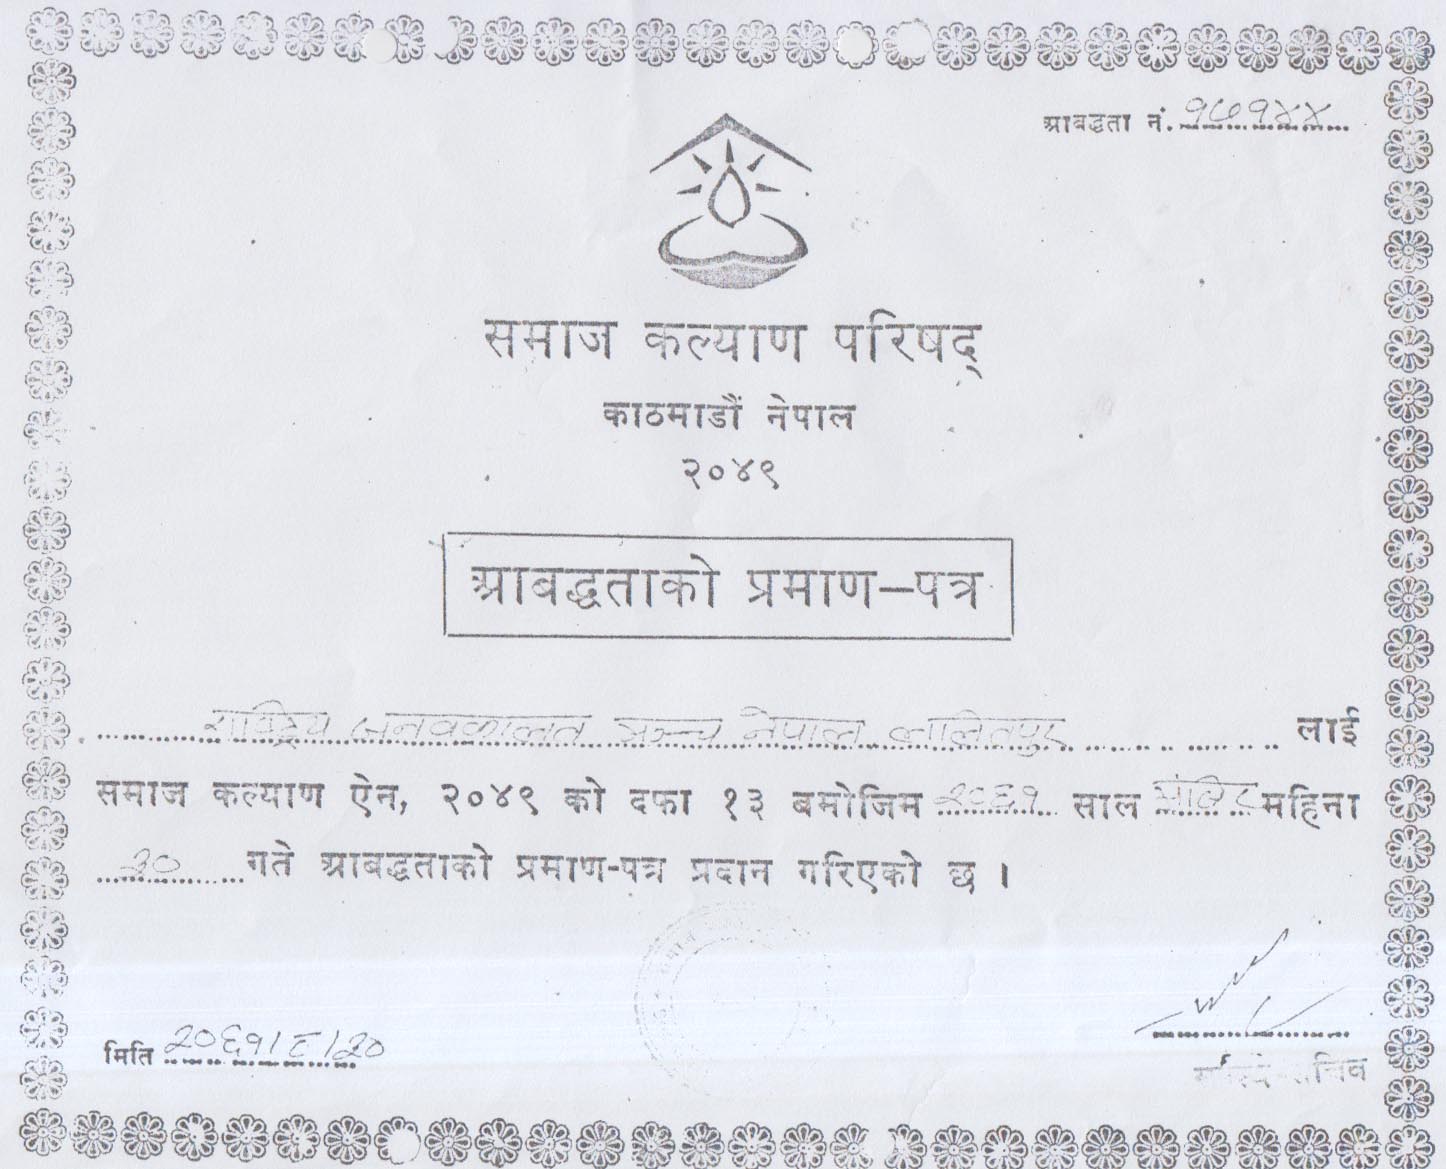 आबद्धता नं. १७१४४
समाज कल्याण परिषद्
काठमाडौं नेपाल
२०४९
आबद्धताको प्रमाण–पत्र
राष्ट्रिय जनवकालत मञ्च नेपाल ललितपुर लाई
समाज कल्याण ऐन, २०४९ को दफा १३ बमोजिम २०६१ साल मंसिर महिना
३० गते आबद्धताको प्रमाण-पत्र प्रदान गरिएको छ ।
मिति २०६१/८/३०
सदस्य-सचिव